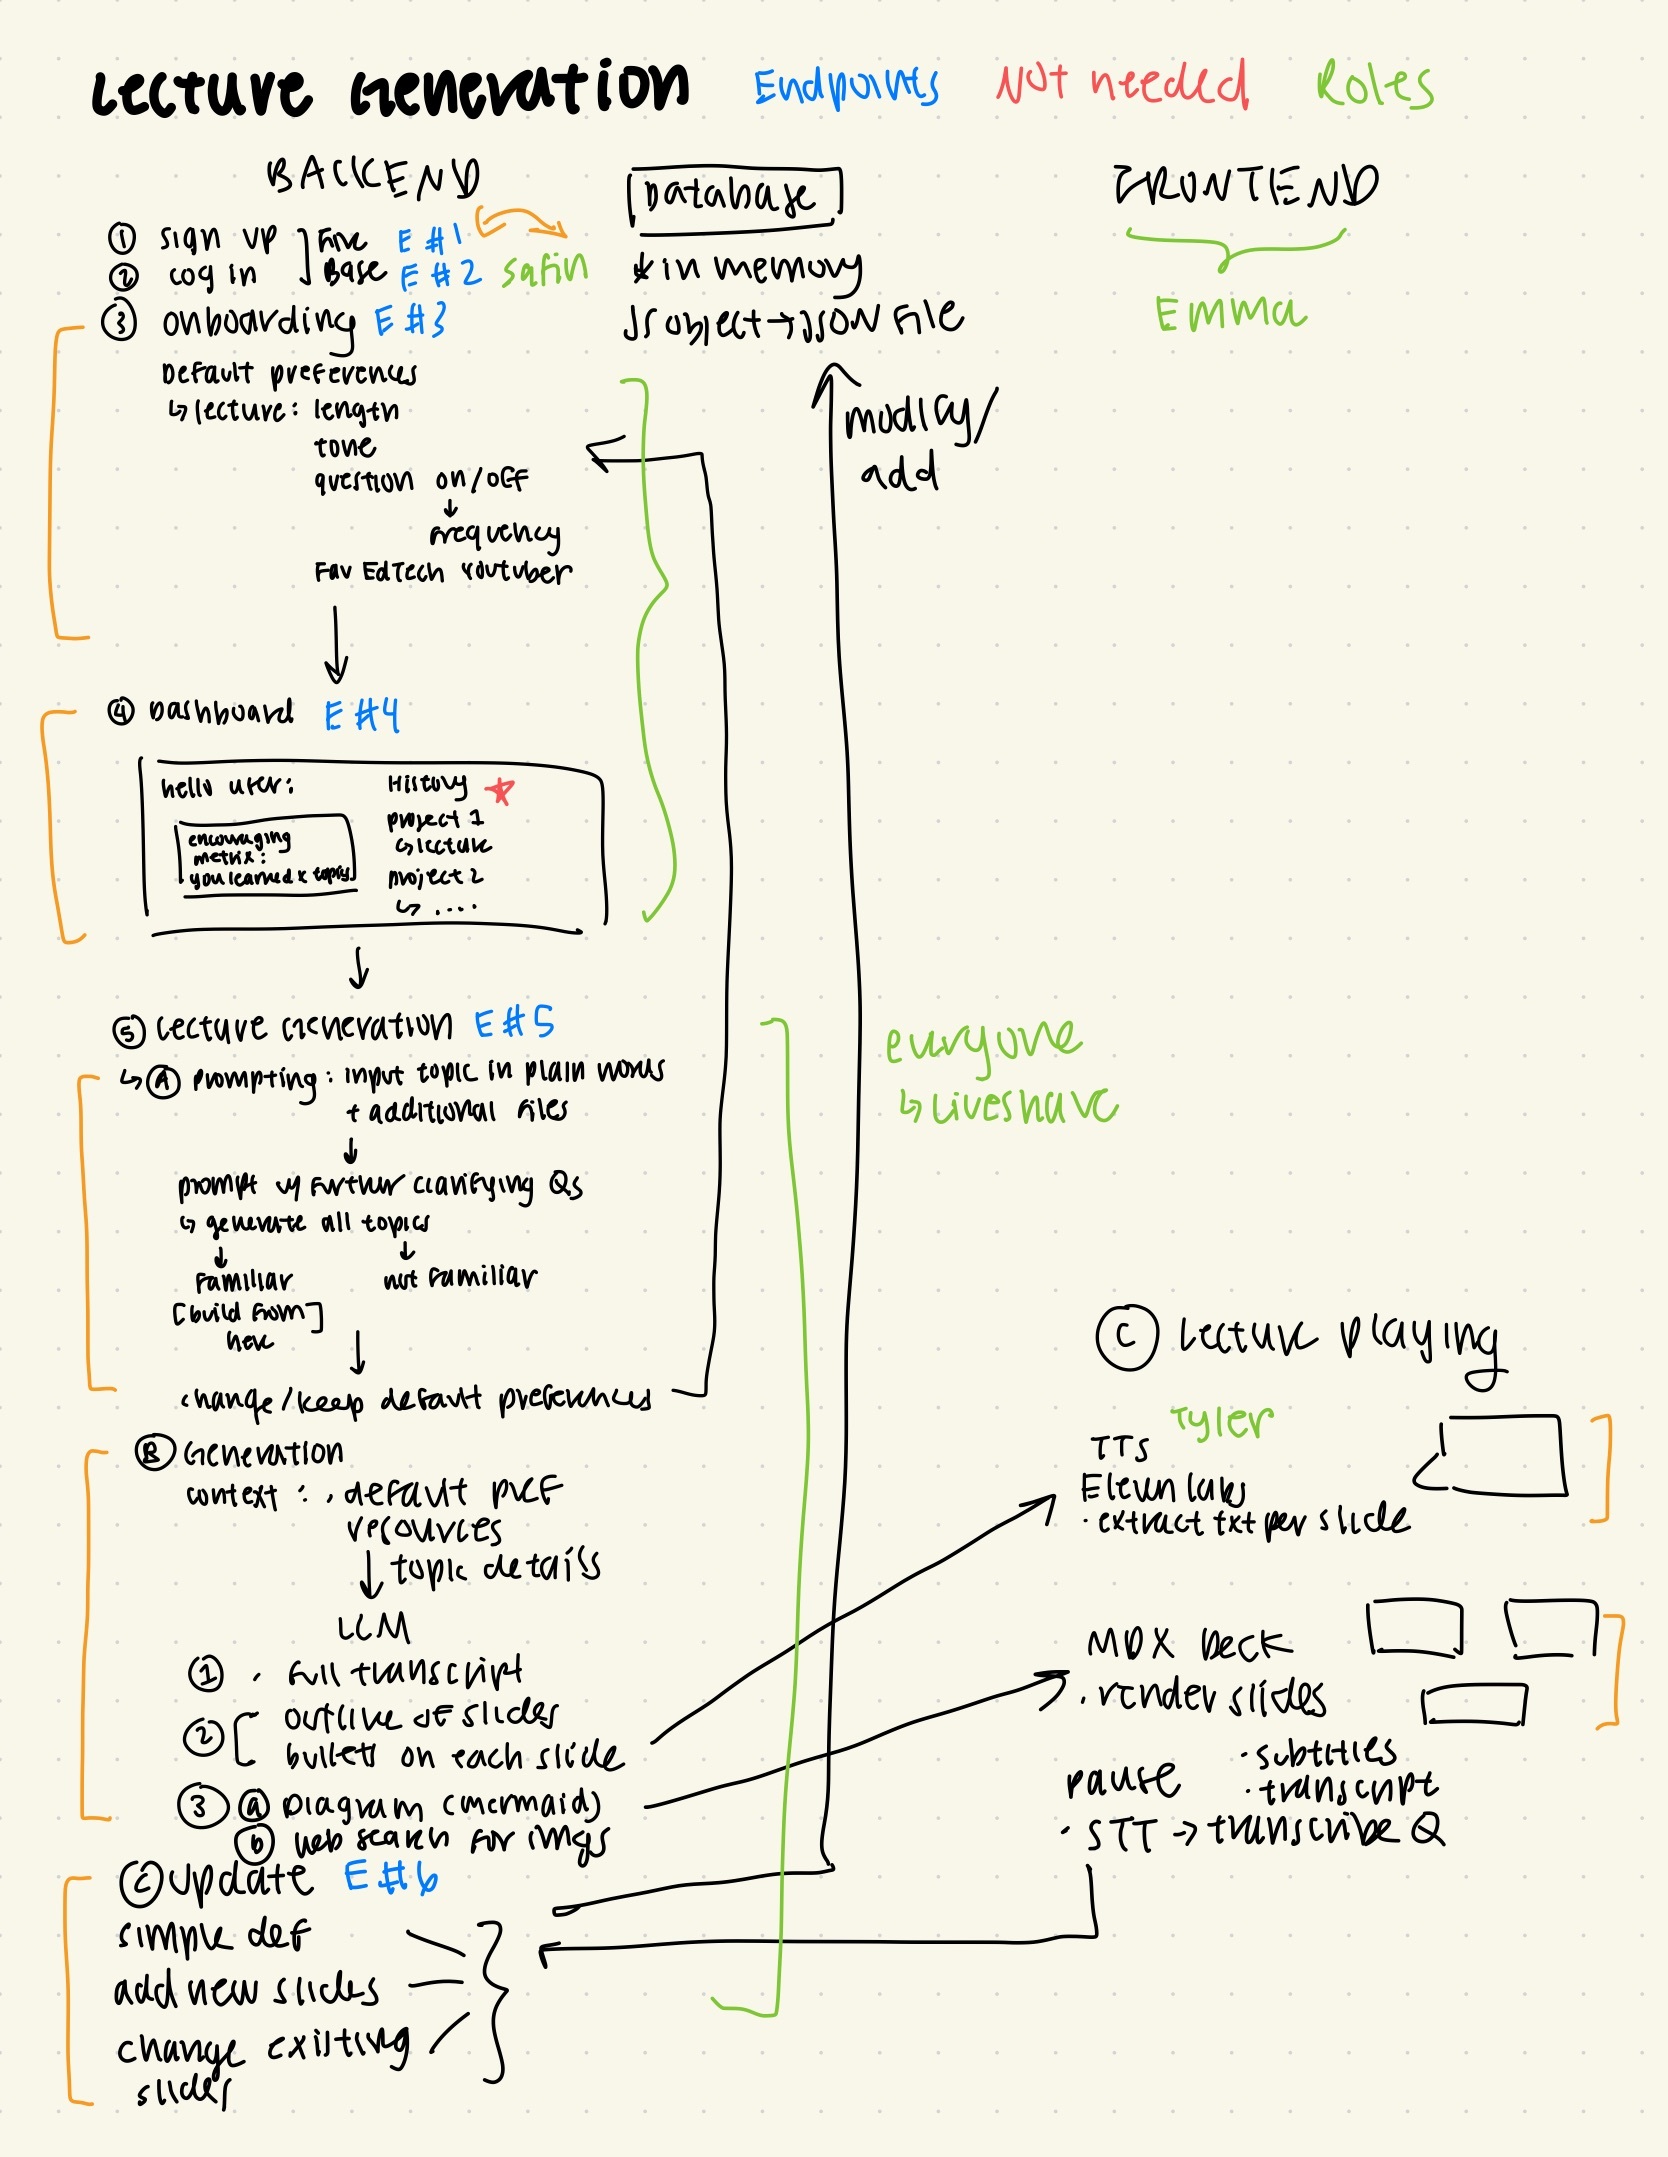 Lecture Generation Endpoints Not needed Roles
BACKEND
Database
FRONTEND
① sign up Fire E #1
② Log in Base E #2 Safin
③ onboarding E #3
in memory
JS object → JSON File
Emma
Default preferences
↳ lecture: length
tone
question on/off
↓
frequency
Fav EdTech Youtuber
modify/
add
④ Dashboard E #4
hello user:
encouraging
metric:
you learned x topics
History ☆
project 1
↳ lecture
project 2
↳ ....
⑤ Lecture Generation E #5
↳ Ⓐ Prompting: input topic in plain words
+ additional files
↓
prompt w/ further clarifying Qs
↳ generate all topics
↓ ↓
Familiar not Familiar
[build from]
here
change/keep default preferences
everyone
↳ Liveshare
Ⓑ Generation
context: . default pref
resources
topic details
LLM
① . full transcript
② outline of slides
bullets on each slide
③ ⓐ Diagram (mermaid)
ⓑ web search for imgs
Ⓒ Update E #6
simple def
add new slides
change existing
slides
Ⓒ Lecture playing
Tyler
TTS
Eleven labs
. extract txt per slide
MDX Deck
. render slides
pause
. subtitles
. transcript
. STT → transcribe Q